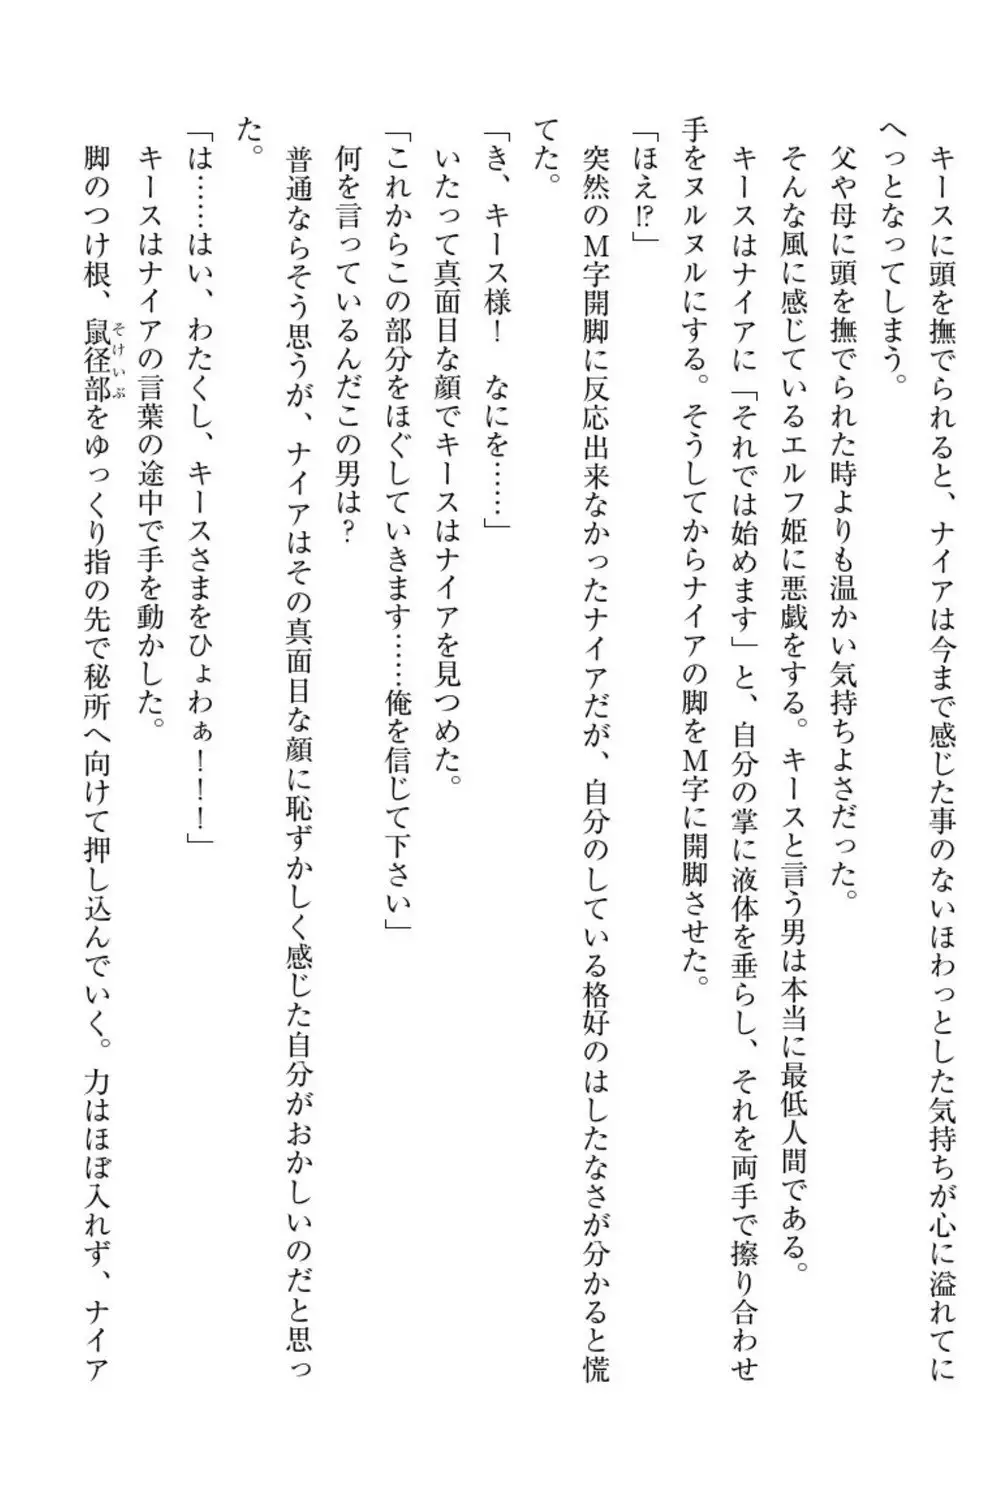 キースに頭を撫でられると、ナイアは今まで感じた事のないほわっとした気持ちが心に溢れてに
へっとなってしまう。
父や母に頭を撫でられた時よりも温かい気持ちよさだった。
そんな風に感じているエルフ姫に悪戯をする。キースと言う男は本当に最低人間である。
キースはナイアに「それでは始めます」と、自分の掌に液体を垂らし、それを両手で擦り合わせ
手をヌルヌルにする。そうしてからナイアの脚をM字に開脚させた。
「ほえ!?」
突然のM字開脚に反応出来なかったナイアだが、自分のしている格好のはしたなさが分かると慌
てた。
「き、キース様！　なにを……」
いたって真面目な顔でキースはナイアを見つめた。
「これからこの部分をほぐしていきます……俺を信じて下さい」
何を言っているんだこの男は？
普通ならそう思うが、ナイアはその真面目な顔に恥ずかしく感じた自分がおかしいのだと思っ
た。
「は……はい、わたくし、キースさまをひょわぁ！！！」
キースはナイアの言葉の途中で手を動かした。
脚のつけ根、鼠径部をゆっくり指の先で秘所へ向けて押し込んでいく。力はほぼ入れず、ナイア
そけいぶ